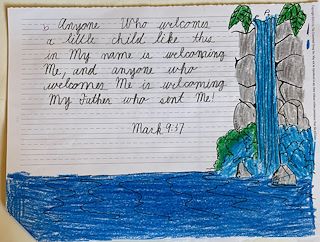 Anyone Who welcomes
a little child like this
in My name is welcoming
Me, and anyone who
welcomes Me is welcoming
My Father who sent Me!
Mark 9:37